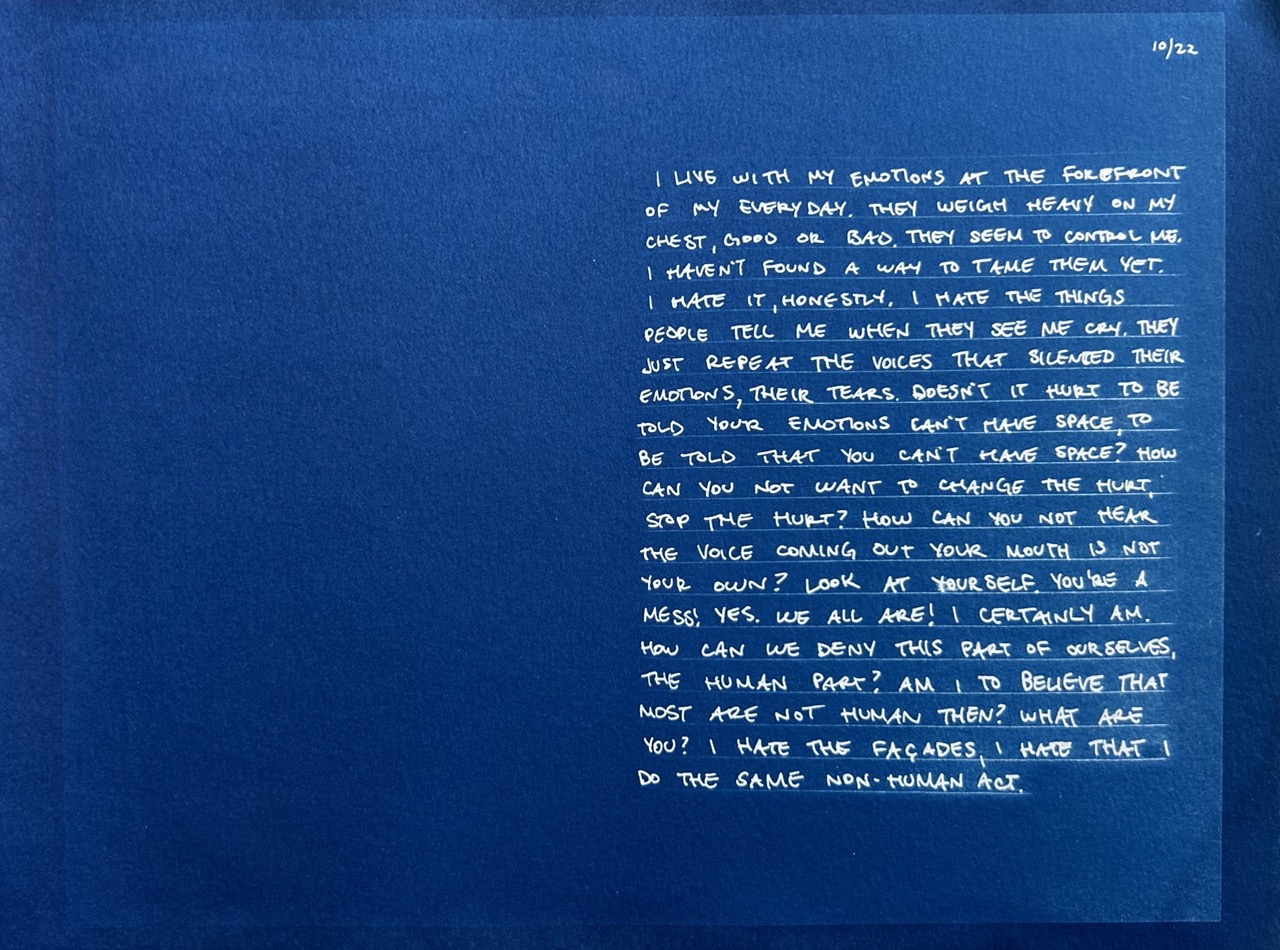 10/22
I LIVE WITH MY EMOTIONS AT THE FOREFRONT
OF MY EVERYDAY. THEY WEIGH HEAVY ON MY
CHEST, GOOD OR BAD. THEY SEEM TO CONTROL ME.
I HAVEN'T FOUND A WAY TO TAME THEM YET.
I HATE IT, HONESTLY. I HATE THE THINGS
PEOPLE TELL ME WHEN THEY SEE ME CRY. THEY
JUST REPEAT THE VOICES THAT SILENCED THEIR
EMOTIONS, THEIR TEARS. DOESN'T IT HURT TO BE
TOLD YOUR EMOTIONS CAN'T HAVE SPACE, TO
BE TOLD THAT YOU CAN'T HAVE SPACE? HOW
CAN YOU NOT WANT TO CHANGE THE HURT,
STOP THE HURT? HOW CAN YOU NOT HEAR
THE VOICE COMING OUT YOUR MOUTH IS NOT
YOUR OWN? LOOK AT YOURSELF. YOU'RE A
MESS! YES. WE ALL ARE! I CERTAINLY AM.
HOW CAN WE DENY THIS PART OF OURSELVES,
THE HUMAN PART? AM I TO BELIEVE THAT
MOST ARE NOT HUMAN THEN? WHAT ARE
YOU? I HATE THE FAÇADES, I HATE THAT I
DO THE SAME NON-HUMAN ACT.